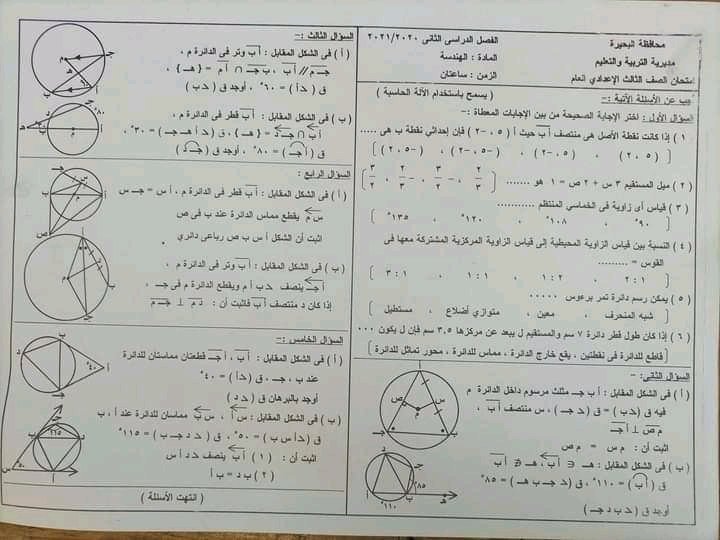 محافظة البحيرة
مديرية التربية والتعليم
امتحان الصف الثالث الإعدادي العام
الفصل الدراسى الثانى ٢٠٢١/٢٠٢٠
المادة : الهندسة
الزمن : ساعتان
جب عن الأسئلة الأتية :-
( يسمح باستخدام الألة الحاسبة )
السؤال الأول : اختر الإجابة الصحيحة من بين الإجابات المعطاة :-
( ١ ) إذا كانت نقطة الأصل هى منتصف أ ب حيث أ ( ٥ ، -٢ ) فإن إحداثي نقطة ب هى .....
( ( ٢ ، ٥ ) ، ( ٥ ، -٢ ) ، ( -٥ ، -٢ ) ، ( -٥ ، ٢ ) )
( ٢ ) ميل المستقيم ٣ س + ٢ ص = ١ هو ....... ( -٣/٢ ، -٢/٣ ، ٢/٣ ، ٣/٢ )
( ٣ ) قياس أى زاوية فى الخماسي المنتظم ...........
( ٩٠° ، ١٠٨° ، ١٢٠° ، ١٣٥° )
( ٤ ) النسبة بين قياس الزاوية المحيطية إلى قياس الزاوية المركزية المشتركة معها فى
القوس = .........
( ١ : ٢ ، ٢ : ١ ، ١ : ١ ، ٣ : ١ )
( ٥ ) يمكن رسم دائرة تمر برءوس .....
( شبه المنحرف ، معين ، متوازي أضلاع ، مستطيل )
( ٦ ) إذا كان طول قطر دائرة ٧ سم والمستقيم ل يبعد عن مركزها ٣.٥ سم فإن ل يكون ...
( قاطع للدائرة فى نقطتين ، يقع خارج الدائرة ، مماس للدائرة ، محور تماثل للدائرة )
السؤال الثانى :-
( أ ) فى الشكل المقابل : أ ب جـ مثلث مرسوم داخل الدائرة م
فيه ق (حـ ب) = ق ( حـ جـ) ، س منتصف أ ب ،
م ص ⊥ أ جـ
اثبت أن : م س = م ص
( ب ) فى الشكل المقابل : هـ ∈ أ ب ، هـ ∉ أ ب
ق ( أ ب ) = ١١٠° ، ق ( حـ جـ ب هـ ) = ٨٥°
أوجد ق ( حـ ب د جـ )
أ
ص
س
م
ب
٨٥°
١١٠°
السؤال الثالث :-
( أ ) فى الشكل المقابل : أ ب وتر فى الدائرة م ،
جـ م // أ ب ، ب جـ ∩ أ م = { هـ } ،
ق ( حـ أ ) = ٦٠° ، أوجد ق ( حـ ب )
( ب ) فى الشكل المقابل : أ ب قطر فى الدائرة م ،
أ ب ∩ جـ د = { هـ } ، ق ( حـ أ هـ جـ ) = ٣٠° ،
ق ( أ جـ ) = ٨٠° ، أوجد ق ( جـ د )
٨٠°
السؤال الرابع :
( أ ) فى الشكل المقابل : أ ب قطر فى الدائرة م ، أ س = جـ س
س م يقطع مماس الدائرة عند ب فى ص
اثبت أن الشكل أ س ب ص رباعى دائري
( ب ) فى الشكل المقابل : أ ب وتر فى الدائرة م ،
أ جـ ينصف حـ ب أ م ويقطع الدائرة م فى جـ ،
إذا كان د منتصف أ ب فاثبت أن : د م ⊥ جـ م
السؤال الخامس :-
( أ ) فى الشكل المقابل : أ ب ، أ جـ قطعتان مماستان للدائرة
عند ب ، جـ ، ق (حـ أ) = ٤٠°
أوجد بالبرهان ق ( حـ د )
( ب ) فى الشكل المقابل : س أ ، س ب مماسان للدائرة عند أ ، ب
ق ( حـ أ س ب ) = ٥٠° ، ق ( حـ د جـ ب ) = ١١٥°
اثبت أن : ( ١ ) أ ب ينصف حـ د أ س
( ٢ ) ب د = ب أ
٤٠°
١١٥°
٥٠°
( انتهت الأسئلة )